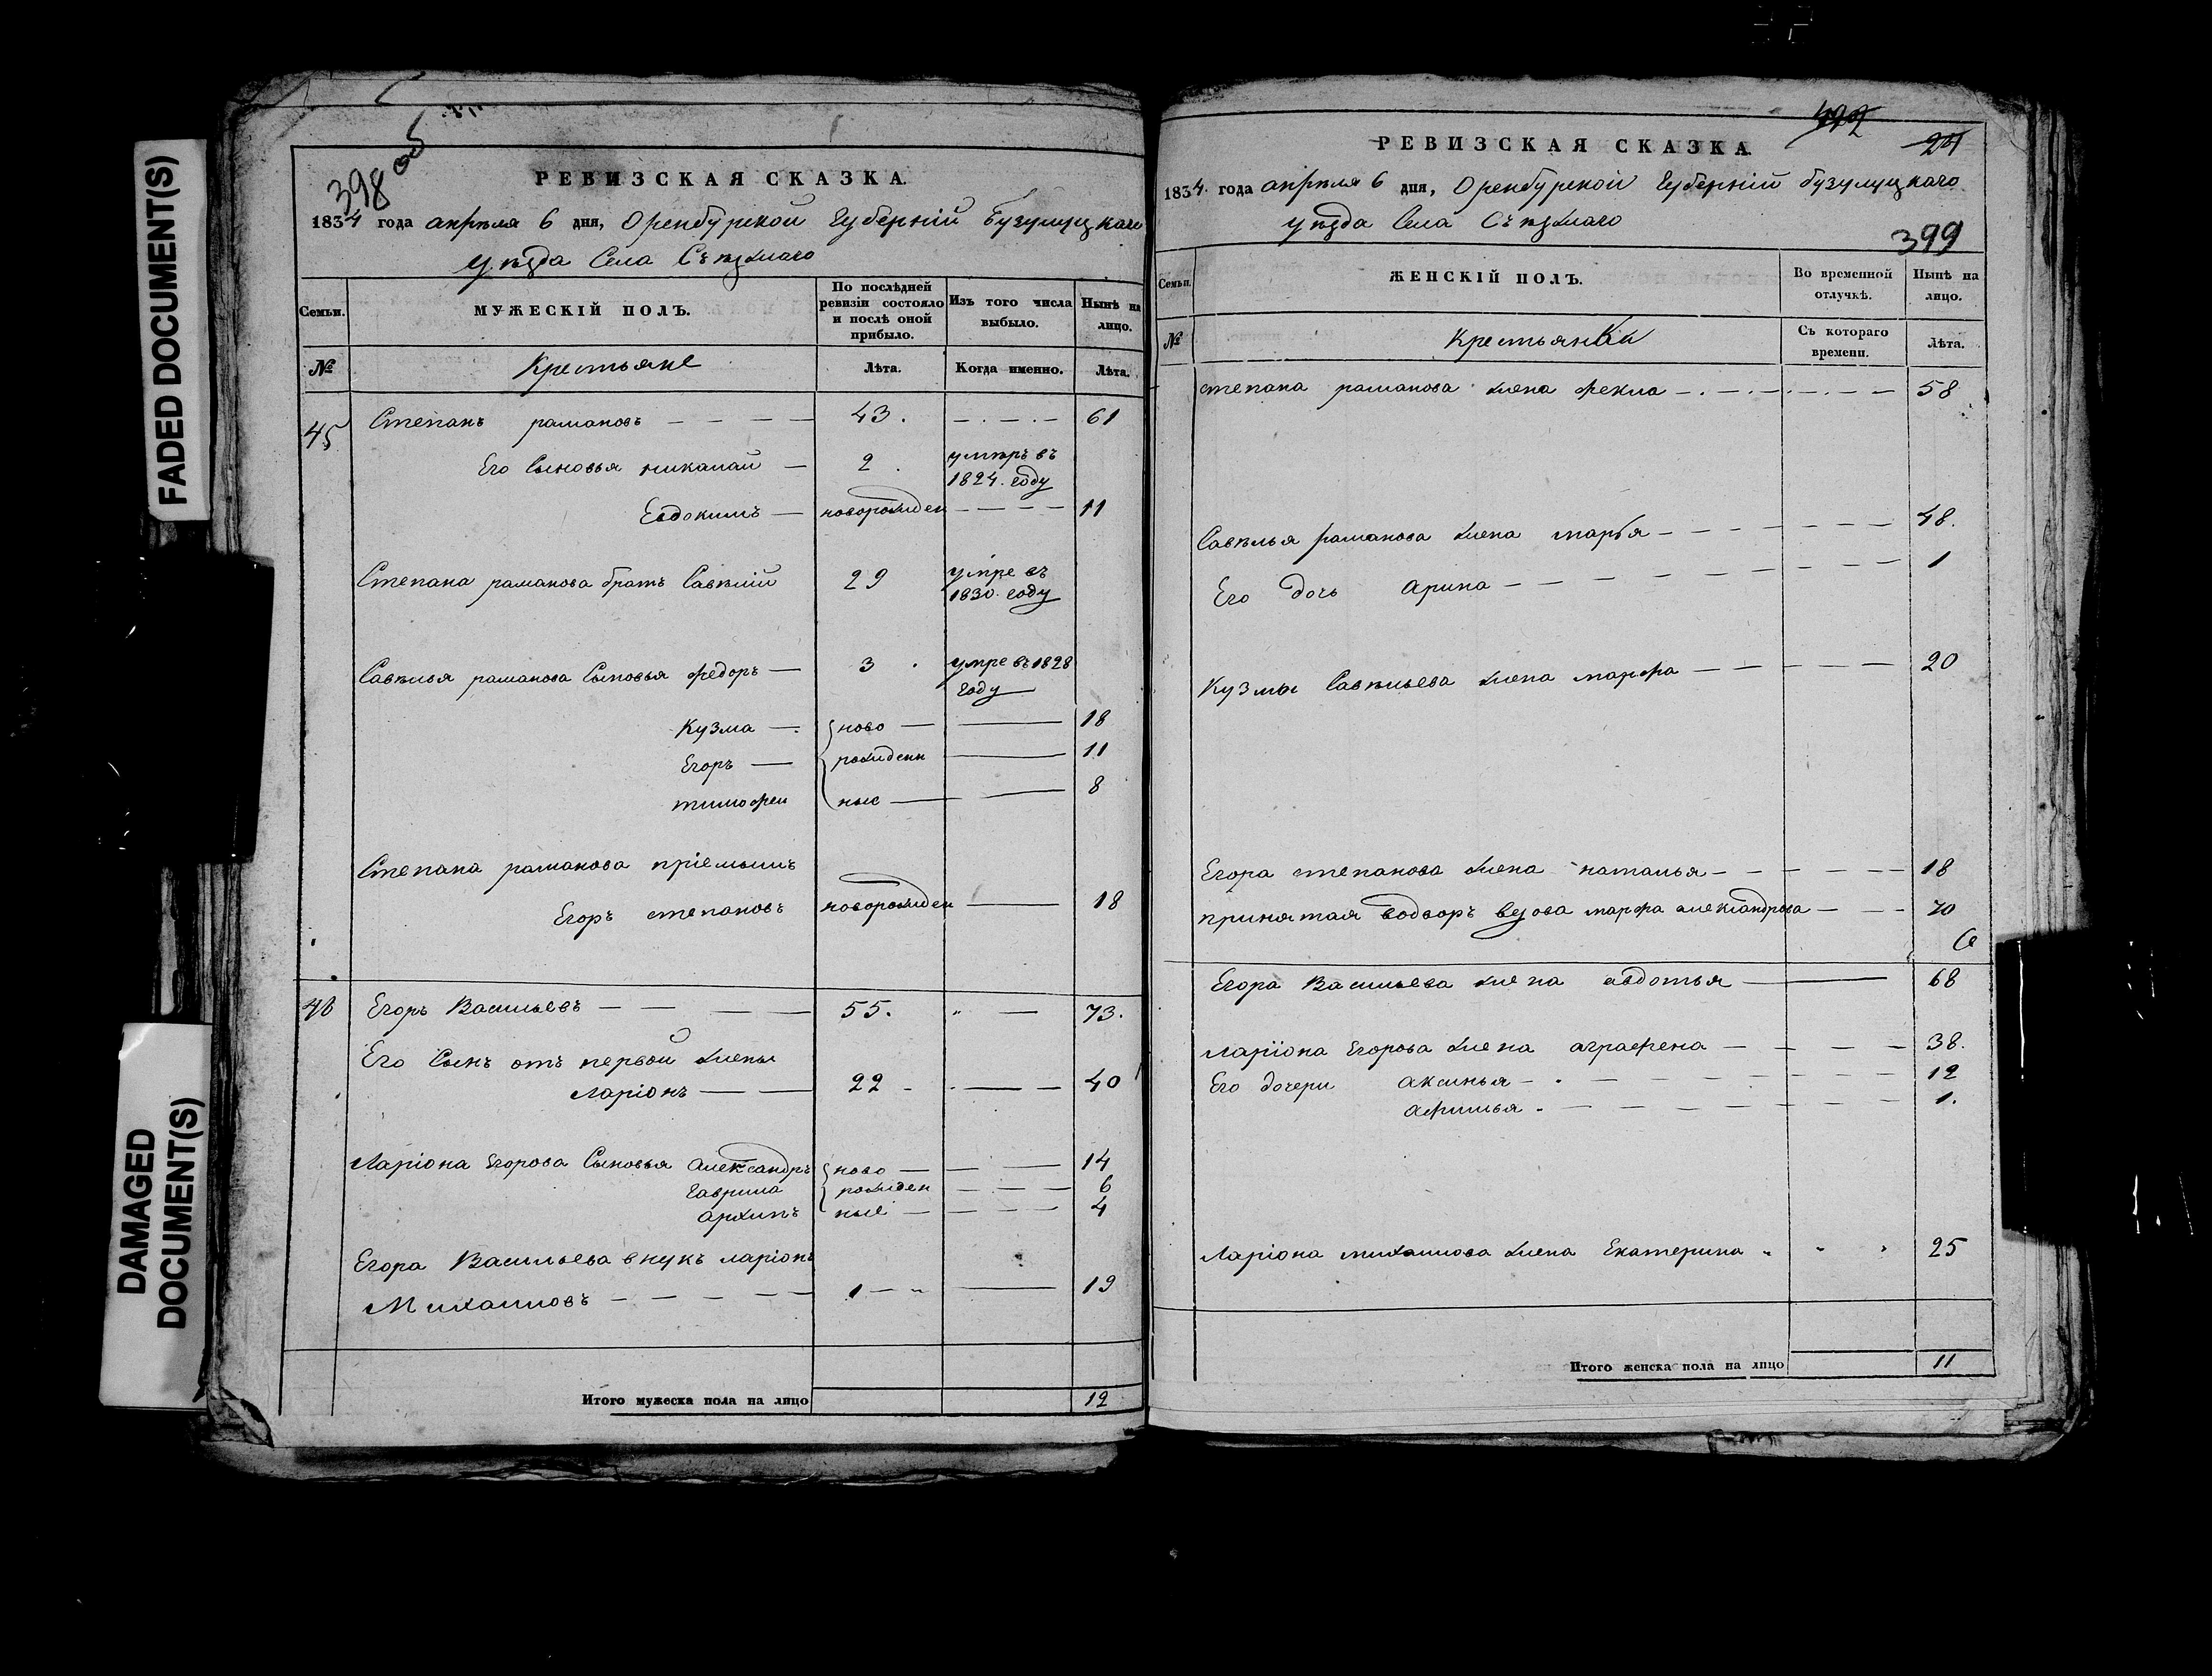 FADED DOCUMENT(S)
DAMAGED
DOCUMENT(S)
398 об
РЕВИЗСКАЯ СКАЗКА.
1834 года апреля 6 дня, Оренбурской Губерній Бузулуцкаго
Уѣзда Села Съѣзжаго
Семьи. МУЖЕСКІЙ ПОЛЪ. По послѣдней ревизіи состояло и послѣ оной прибыло. Изъ того числа выбыло. Нынѣ на лицо.
№ Крестьяне Лѣта. Когда именно. Лѣта.
45 Степанъ рамановъ — — — 43. —.—.— 61
Его Сыновья никалаи — 2. умѣръ въ
1824. году
Евдокимъ — новорожден — — — — 11
Степана раманова братъ Савѣлій 29 умре въ
1830. году
Савѣлья раманова Сыновья федоръ — 3. умре въ 1828
году
Кузма —. ново — — 18
Егоръ — рожденн — 11
тимофеи ные — — 8
Степана раманова пріемышъ
Егоръ степановъ новорожден — 18
46 Егоръ Васильевъ — — — — 55. „ — 73.
Его Сынъ отъ первой жены
ларіонъ — — 22 - — — 40
Ларіона Егорова Сыновья александръ ново — — — 14
гаврила рожден — — — 6
архипъ ные — — — — 4
Егора Васильева внукъ ларіонъ
Михаиловъ — — — — — 1 — „ — 19
Итого мужеска пола на лицо 12
24
РЕВИЗСКАЯ СКАЗКА.
1834. года апреля 6 дня, Оренбурской Губерній бузулуцкаго
уѣзда Села Съѣзжаго
399
Семьи. ЖЕНСКІЙ ПОЛЪ. Во временной отлучкѣ. Нынѣ на лицо.
№ Крестьянки Съ котораго времени. Лѣта.
степана раманова жена фекла —.—.—.—.— — 58
Савѣлья раманова жена марья — — — — — — — 48.
Его дочь арина — — — — — — — — 1
Кузмы Савѣльева жена марфа — — — — — 20
Егора степанова жена наталья — — — — — 18
принятая водворъ марфа александрова — — — 70
Егора Васильева жена авдотья — — 68
ларіона Егорова жена аграфена — — — — 38.
Его дочери аксинья — . — — — — — — — 12
афимья . — — — — — — — — 1.
Ларіона михаилова жена Екатерина „ „ „ 25
Итого женска пола на лицо 11